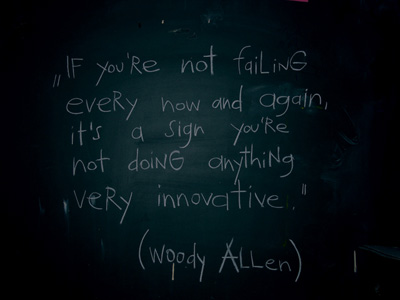 „IF you'Re not faiLiNG
eveRy now and again,
it's a sign you'Re
not doiNG anythiNg
veRy innovative."
(Woody ALLen)